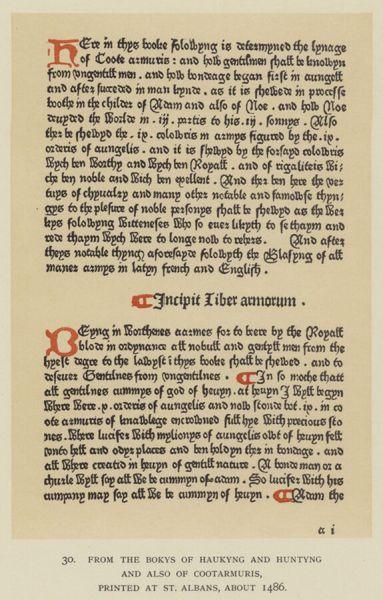 HEre in thys booke folowyng is determyned the lynage
of Coote armuris : and how gentilmen shall be knowyn
from vngentill men . and how bondeage began first in aungell
and after succeded in man kynde . as it is shewede in processe
boothe in the childer of Adam and also of Noe . and how Noe
deuyded the Worlde in . iij . partis to his .iij . sonnys . Also
ther be shewyd the . ix . colowris in armys figured by the .ix .
orderis of aungelis . and it is shewyd by the forsayd colowris
Wych ben Worthy and Wych ben Royall . and of rigaliteis Wi-
che ben noble and Wich ben excellent . And ther ben here the ver
tuys of chyualry and many other notable and famowse thyn-
gys to the plesure of noble personys shall be shewyd as the Wer
kys folowyng Witteneses Who so euer likyth to se thaym and
rede thaym Wych Were to longe now to rehers . And after
theys notable thyngꝭ aforesayde folowyth the Blasyng of all
maner armys in latyn french and English .
Incipit Liber armorum .
BEyng in Worthenes aarmes for to bere by the Royall
blode in ordynance all nobull and gentyll men from the
hyest degre to the lawyst i thys booke shall be shewed . and to
deseuer Gentilnes from vngentilnes . In so moche thatt
all gentilnes cummys of god of heuyn . at heuyn I Wyll begyn
Where Were .v. orderis of aungelis and now stonde bot .iv. in co
ote armuris of knawlege encrowned full hye With precious sto
nes . Where Lucifer With mylionys of aungelis owt of heuyn fell
vnto hell and odyr places and ben holdyn ther in bondage . and
all Where creatid in heuyn of gentill nature . A bonde man or a
churle Wyll say all We be cummyn of adam . So Lucifer With his
cumpany may say all We be cummyn of heuyn . Adam the
a i
30. FROM THE BOKYS OF HAUKYNG AND HUNTYNG
AND ALSO OF COOTARMURIS,
PRINTED AT ST. ALBANS, ABOUT 1486.